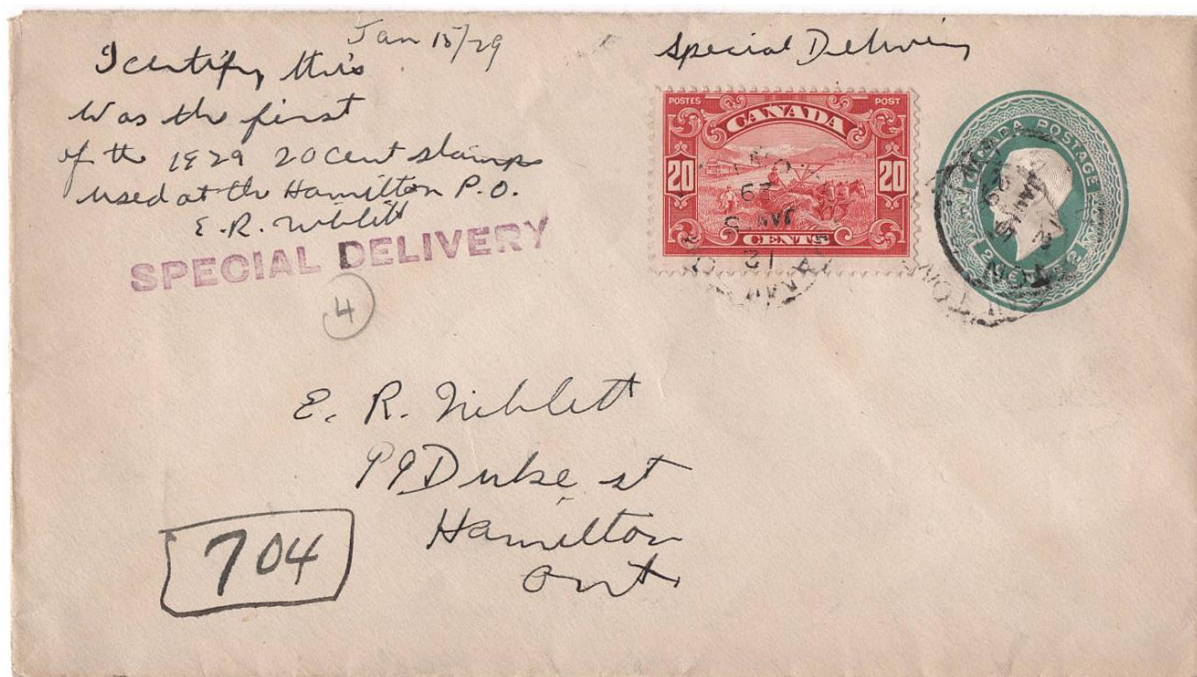 Jan 15/29
I certify this
was the first
of the 1929 20 cent stamps
used at the Hamilton P.O.
E.R. Niblett
SPECIAL DELIVERY
4
Special Delivery
POSTES POST
CANADA
20 20
CENTS
CANADA POSTAGE
E. R. Niblett
99 Duke st
Hamilton
Ont
704